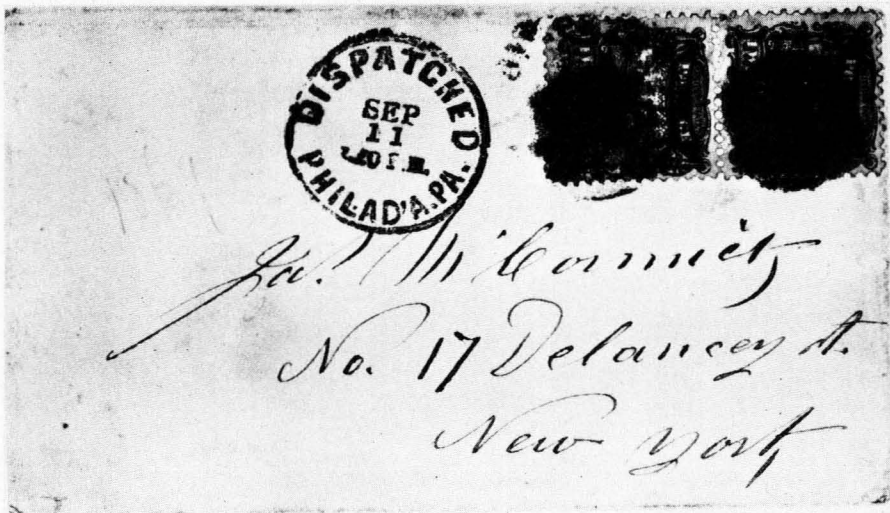 DISPATCHED
SEP
11
PHILAD'A. PA.
Jas. McCormick
No. 17 Delancey st.
New York